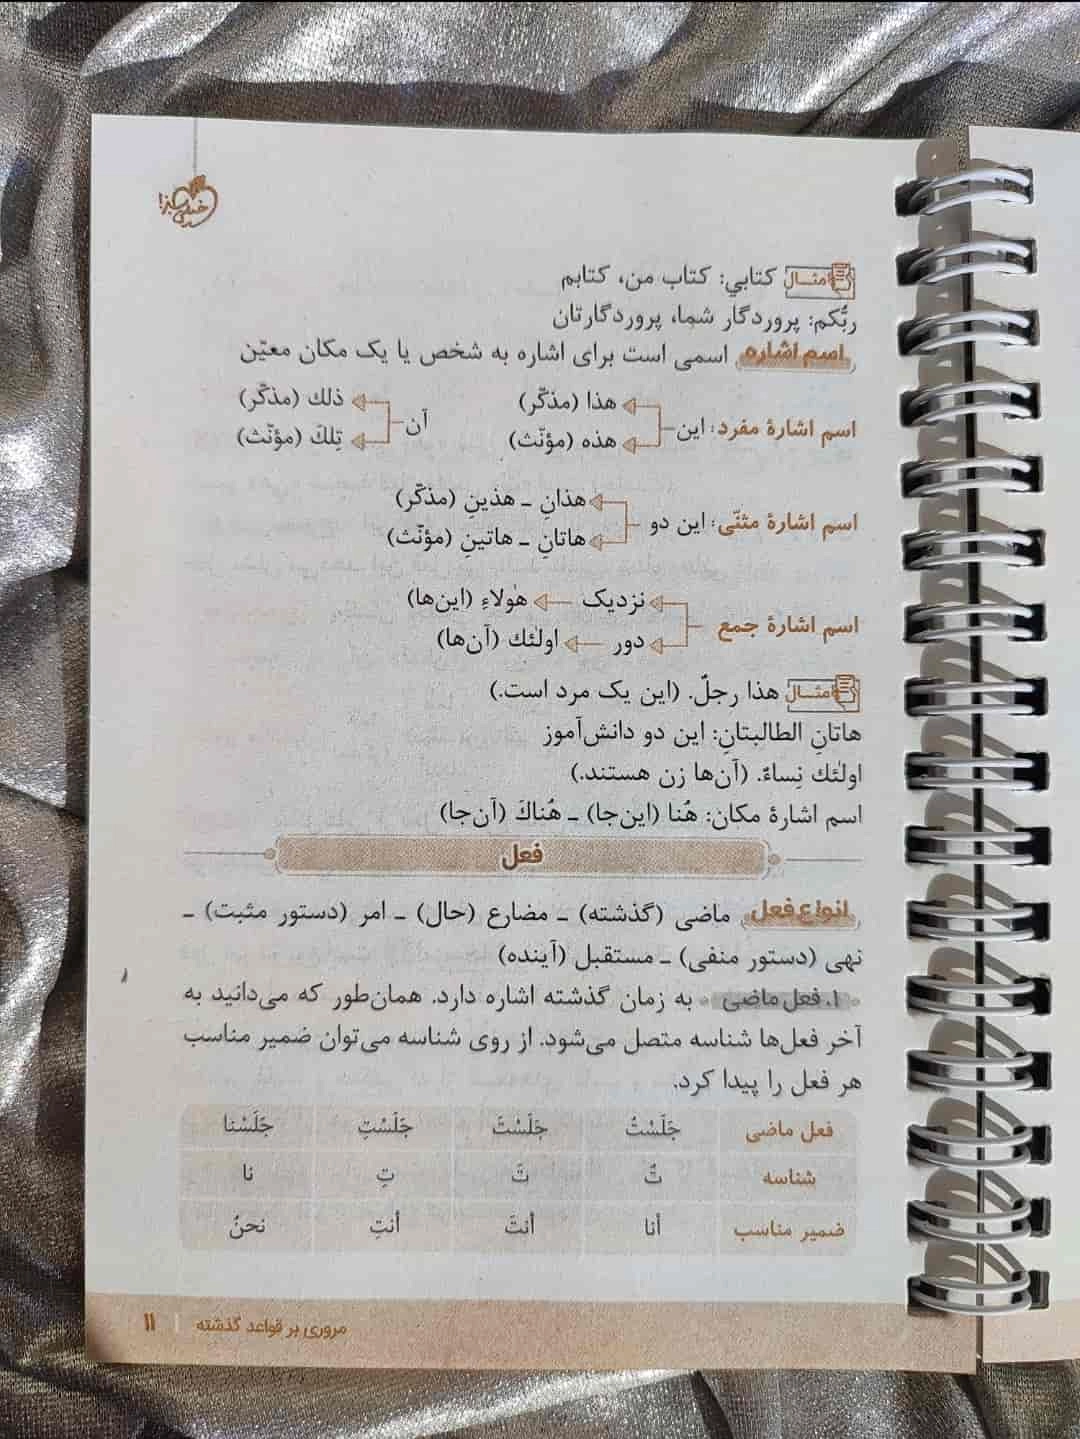 خیلی سبز!
مثال کتابي: کتاب من، کتابم
ربُّکم: پروردگار شما، پروردگارتان
اسم اشاره اسمی است برای اشاره به شخص یا یک مکان معیّن
اسم اشارهٔ مفرد: این هذا (مذکّر) هذه (مؤنّث) آن ذلك (مذکّر) تِلكَ (مؤنّث)
اسم اشارهٔ مثنّی: این دو هذانِ ـ هذینِ (مذکّر) هاتانِ ـ هاتینِ (مؤنّث)
اسم اشارهٔ جمع نزدیک هٰولاءِ (این‌ها) دور اولٰئك (آن‌ها)
مثال هذا رجلٌ. (این یک مرد است.)
هاتانِ الطالبتانِ: این دو دانش‌آموز
اولٰئك نِساءٌ. (آن‌ها زن هستند.)
اسم اشارهٔ مکان: هُنا (این‌جا) ـ هُناكَ (آن‌جا)
فعل
انواع فعل ماضی (گذشته) ـ مضارع (حال) ـ امر (دستور مثبت) ـ
نهی (دستور منفی) ـ مستقبل (آینده)
۱. فعل ماضی به زمان گذشته اشاره دارد. همان‌طور که می‌دانید به
آخر فعل‌ها شناسه متصل می‌شود. از روی شناسه می‌توان ضمیر مناسب
هر فعل را پیدا کرد.
فعل ماضی جَلَسْتُ جَلَسْتَ جَلَسْتِ جَلَسْنا
شناسه تُ تَ تِ نا
ضمیر مناسب أنا أنتَ أنتِ نحنُ
مروری بر قواعد گذشته | ۱۱